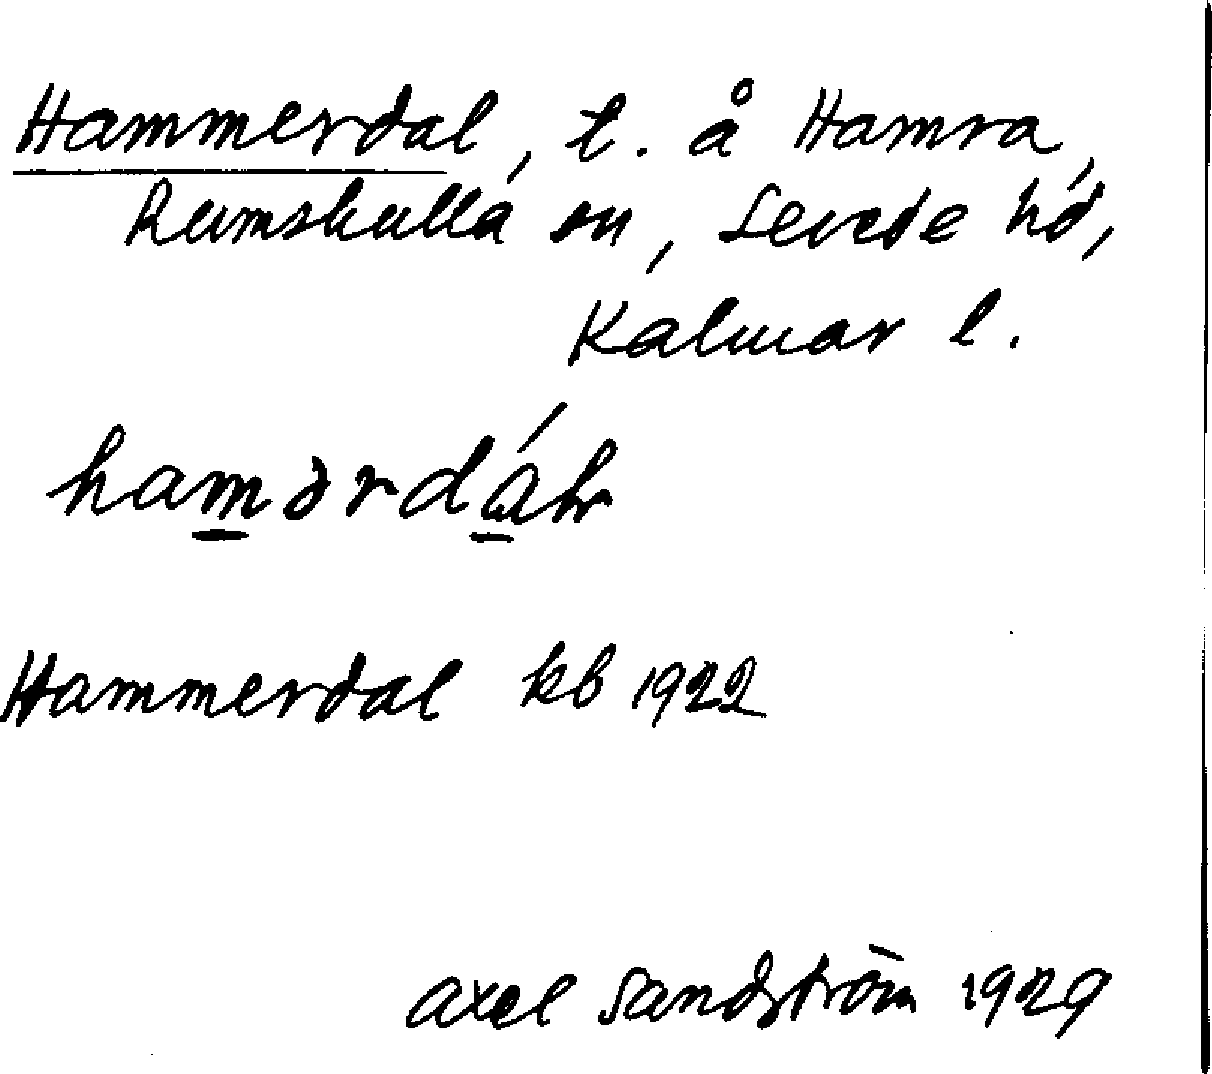 Hammerdal, t. å Hamra,
Rumskulla sn, Sevede hd,
Kalmar l.
hamərdáln
Hammerdal kb 1922
Axel Sandström 1929